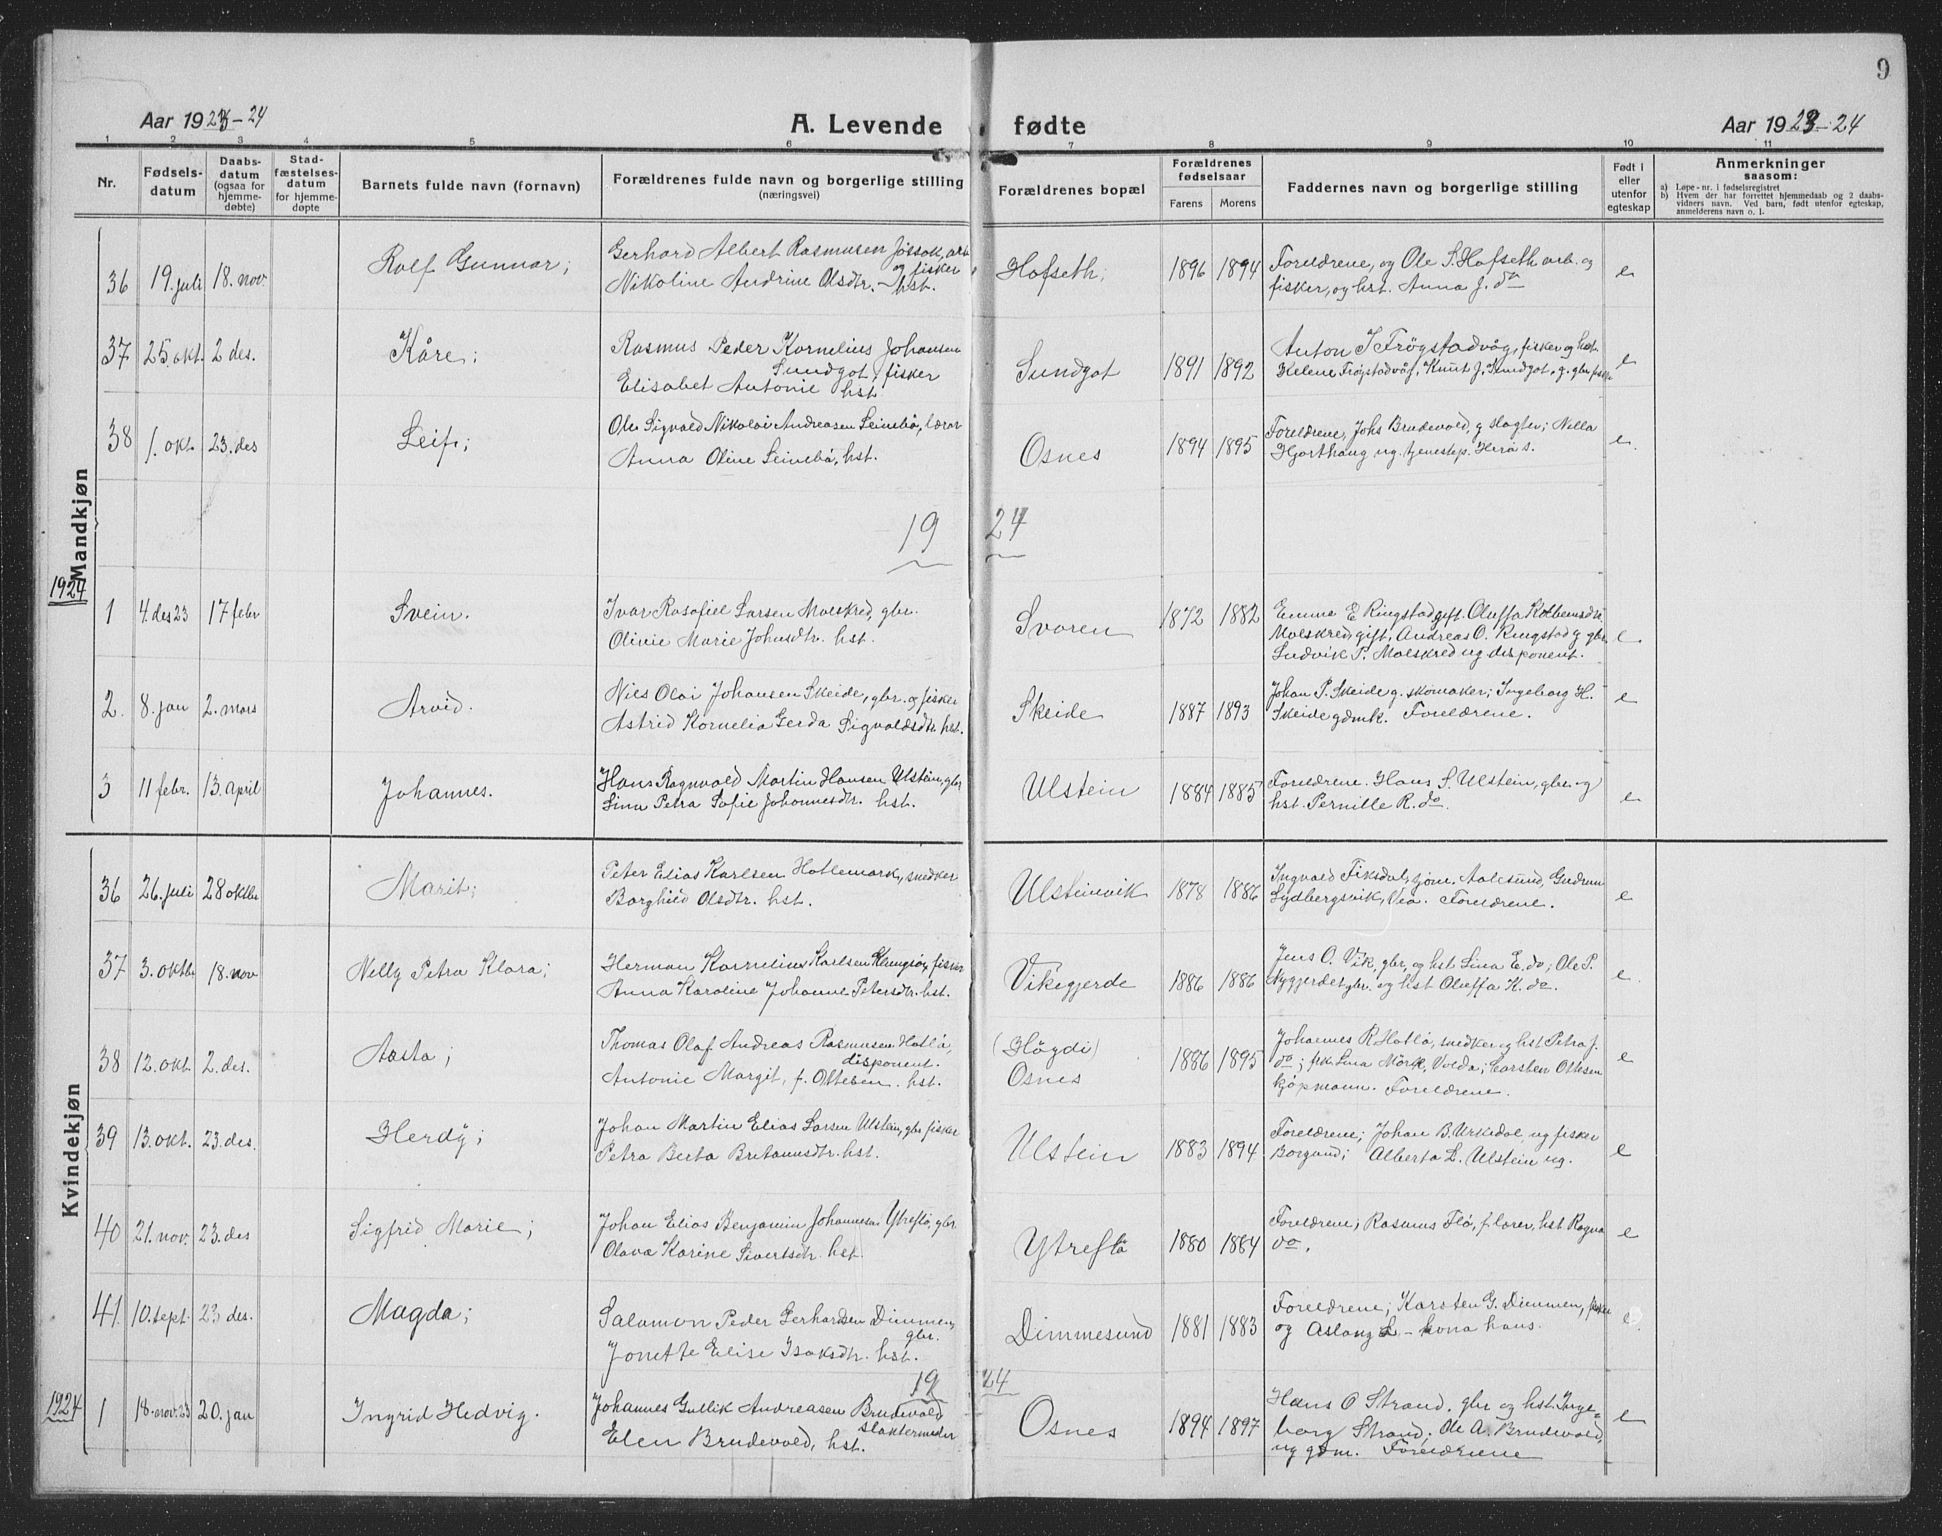 9
Aar 1923-24 A. Levende fødte Aar 1923-24
1 2 3 4 5 6 7 8 9 10 11
Nr. Fødsels-datum Daabs-datum (ogsaa for hjemme-døbte) Stad-fæstelses-datum for hjemme-døpte Barnets fulde navn (fornavn) Forældrenes fulde navn og borgerlige stilling (næringsvei) Forældrenes bopæl Forældrenes fødselsaar Farens Morens Faddernes navn og borgerlige stilling Født i eller utenfor egteskap Anmerkninger saasom:
a) Løpe-nr. i fødselsregistret
b) Hvem der har forrettet hjemmedaab og 2 daabs-vidners navn. Ved barn, født utenfor egteskap, anmelderens navn o. l.
Mandkjøn
36 19. juli 18. nov. Rolf Gunnar; Gerhard Albert Rasmusen Jøssok, arb. og fisker
Nikoline Andrine Olsdtr. hst. Hofseth; 1896 1894 Foreldrene, og Ole S. Hofseth arb. og
fisker, og hst. Anna J. do e
37 25. okt. 2 des. Kåre; Rasmus Peder Kornelius Johansen
Sundgot, fisker
Elisabet Antonie hst. Sundgot 1891 1892 Anton J Frøgstadvåg, fisker og hst.
Helene Frøgstadvåg, Knut J. Sundgot, g. gbr. fisk. e
38 1. okt. 23. des Leif; Ole Sigvald Nikolai Andreasen Seinebø, lærar
Anna Oline Seinebø, hst. Osnes 1894 1895 Foreldrene, Johs Brudevold, g slagter; Nella
Hjorthaug ug. tjenestep. Herøs. e
19 24
1924
1 4. des 23 17 febr Svein. Ivar Rasafiel Larsen Molskred, gbr.
Olivie Marie Johnsdtr. hst. Svoren 1872 1882 Emma E Ringstad gift. Oluffa Kolbeinsdtr
Molskred gift, Andreas O. Ringstad g gbr
Ludvik P. Molskred ug disponent. e
2. 8. jan 2. mars Arvid. Nils Olai Johansen Skeide, gbr. og fisker
Astrid Kornelia Gerda Sigvaldsdtr. hst. Skeide 1887 1893 Johan P. Skeide g. skomaker; Ingeborg H.
Skeide gdmk. Foreldrene. e
3 11 febr. 13. april Johannes. Hans Ragnvald Martin Hansen Ulstein, gbr
Lina Petra Sofie Johannesdtr. hst. Ulstein 1884 1885 Foreldrene. Hans S. Ulstein, gbr. og
hst. Pernille R. do. e
Kvindekjøn
36 26. juli 28 oktbr Marit; Peter Elias Karlsen Hatlemark, snedker
Borghild Olsdtr. hst. Ulsteinvik 1878 1886 Ingvald Fiksdal, tjom. Aalesund, Gudrun
Sydbergsvik, Veø. Foreldrene. e
37 3. oktbr 18. nov Nelly Petra Klara; Herman Kornelius Karlsen Klungsøy, fisker
Anna Karoline Johanne Petersdtr. hst. Vikegjerde 1886 1886 Jens O. Vik, gbr, og hst Lina E. do; Ole P.
Nygjerdet gbr. og hst Oluffa K. do. e
38 12. okt 2. des. Aasta; Thomas Olaf Andreas Rasmusen Hatlø,
disponent.
Antonie Margit, f. Ottesen. hst. (Høgdi)
Osnes 1886 1895 Johannes R. Hatlø, snedker og hst Petra J.
do; frk. Lina Mørk, Volda; Carsten Ottesen
kjøpmann. Foreldrene. e
39 13. okt. 23. des. Herdy; Johan Martin Elias Larsen Ulstein, gbr fisker
Petra Berta Bretanusdtr. hst. Ulstein 1883 1894 Foreldrene; Johan B. Urkedal, ug fisker
Borgund; Alberta L. Ulstein ug. e
40 21. nov. 23. des Sigfrid Marie; Johan Elias Benjamin Johannesen Ytreflø, gbr
Olava Karine Sivertsdtr. hst. Ytreflø 1880 1884 Foreldrene; Rasmus Flø, f. lærer, hst Ragna
do. e
41. 10. sept. 23 des. Magda; Salamon Peder Gerhardsen Dimmen,
gbr.
Jonette Elise Isaksdtr. hst. Dimmesund 1881 1883 Foreldrene; Karsten G. Dimmen, fisker
og Aslaug L - kona hans. e
19 24
1924
1 18. nov. 23 20. jan Ingrid Hedvig. Johannes Gullik Andreasen Brudevold
slaktermester
Elen Brudevold, hst. Osnes 1894 1897 Hans O Strand. gbr og hst. Inge-
borg Strand; Ole A. Brudevold,
ug gdm. Foreldrene e